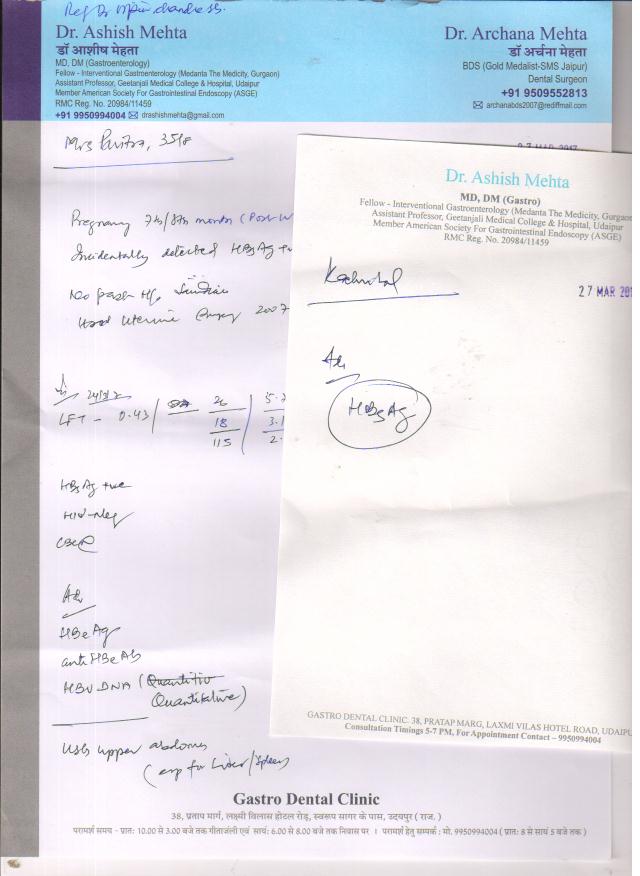 Ref Dr
Dr. Ashish Mehta
डॉ आशीष मेहता
MD, DM (Gastroenterology)
Fellow - Interventional Gastroenterology (Medanta The Medicity, Gurgaon)
Assistant Professor, Geetanjali Medical College & Hospital, Udaipur
Member American Society For Gastrointestinal Endoscopy (ASGE)
RMC Reg. No. 20984/11459
+91 9950994004 drashishmehta@gmail.com
Dr. Archana Mehta
डॉ अर्चना मेहता
BDS (Gold Medalist-SMS Jaipur)
Dental Surgeon
+91 9509552813
archanabds2007@rediffmail.com
Mrs 35/F
27 MAR 2017
Pregnancy 7th/8th month (Post
Incidentally detected HBsAg +v
No past H/o
2007
LFT - 0.43 / 26 / 5.
18 3.1
115 2.
HBsAg +ve
HIV-Neg
Adv
HBeAg
anti HBeAb
HBV DNA (Quantitiv
Quantitative)
USG upper abdomen
(esp for Liver/Spleen)
Dr. Ashish Mehta
MD, DM (Gastro)
Fellow - Interventional Gastroenterology (Medanta The Medicity, Gurgaon
Assistant Professor, Geetanjali Medical College & Hospital, Udaipur
Member American Society For Gastrointestinal Endoscopy (ASGE)
RMC Reg. No. 20984/11459
27 MAR 201
Adv
HBsAg
GASTRO DENTAL CLINIC. 38, PRATAP MARG, LAXMI VILAS HOTEL ROAD, UDAIPU
Consultation Timings 5-7 PM, For Appointment Contact – 9950994004
Gastro Dental Clinic
38, प्रताप मार्ग, लक्ष्मी विलास होटल रोड़, स्वरूप सागर के पास, उदयपुर ( राज. )
परामर्श समय - प्रातः 10.00 से 3.00 बजे तक गीतांजली एवं सायं: 6.00 से 8.00 बजे तक निवास पर । परामर्श हेतु सम्पर्क : मो. 9950994004 ( प्रातः 8 से सायं 5 बजे तक )